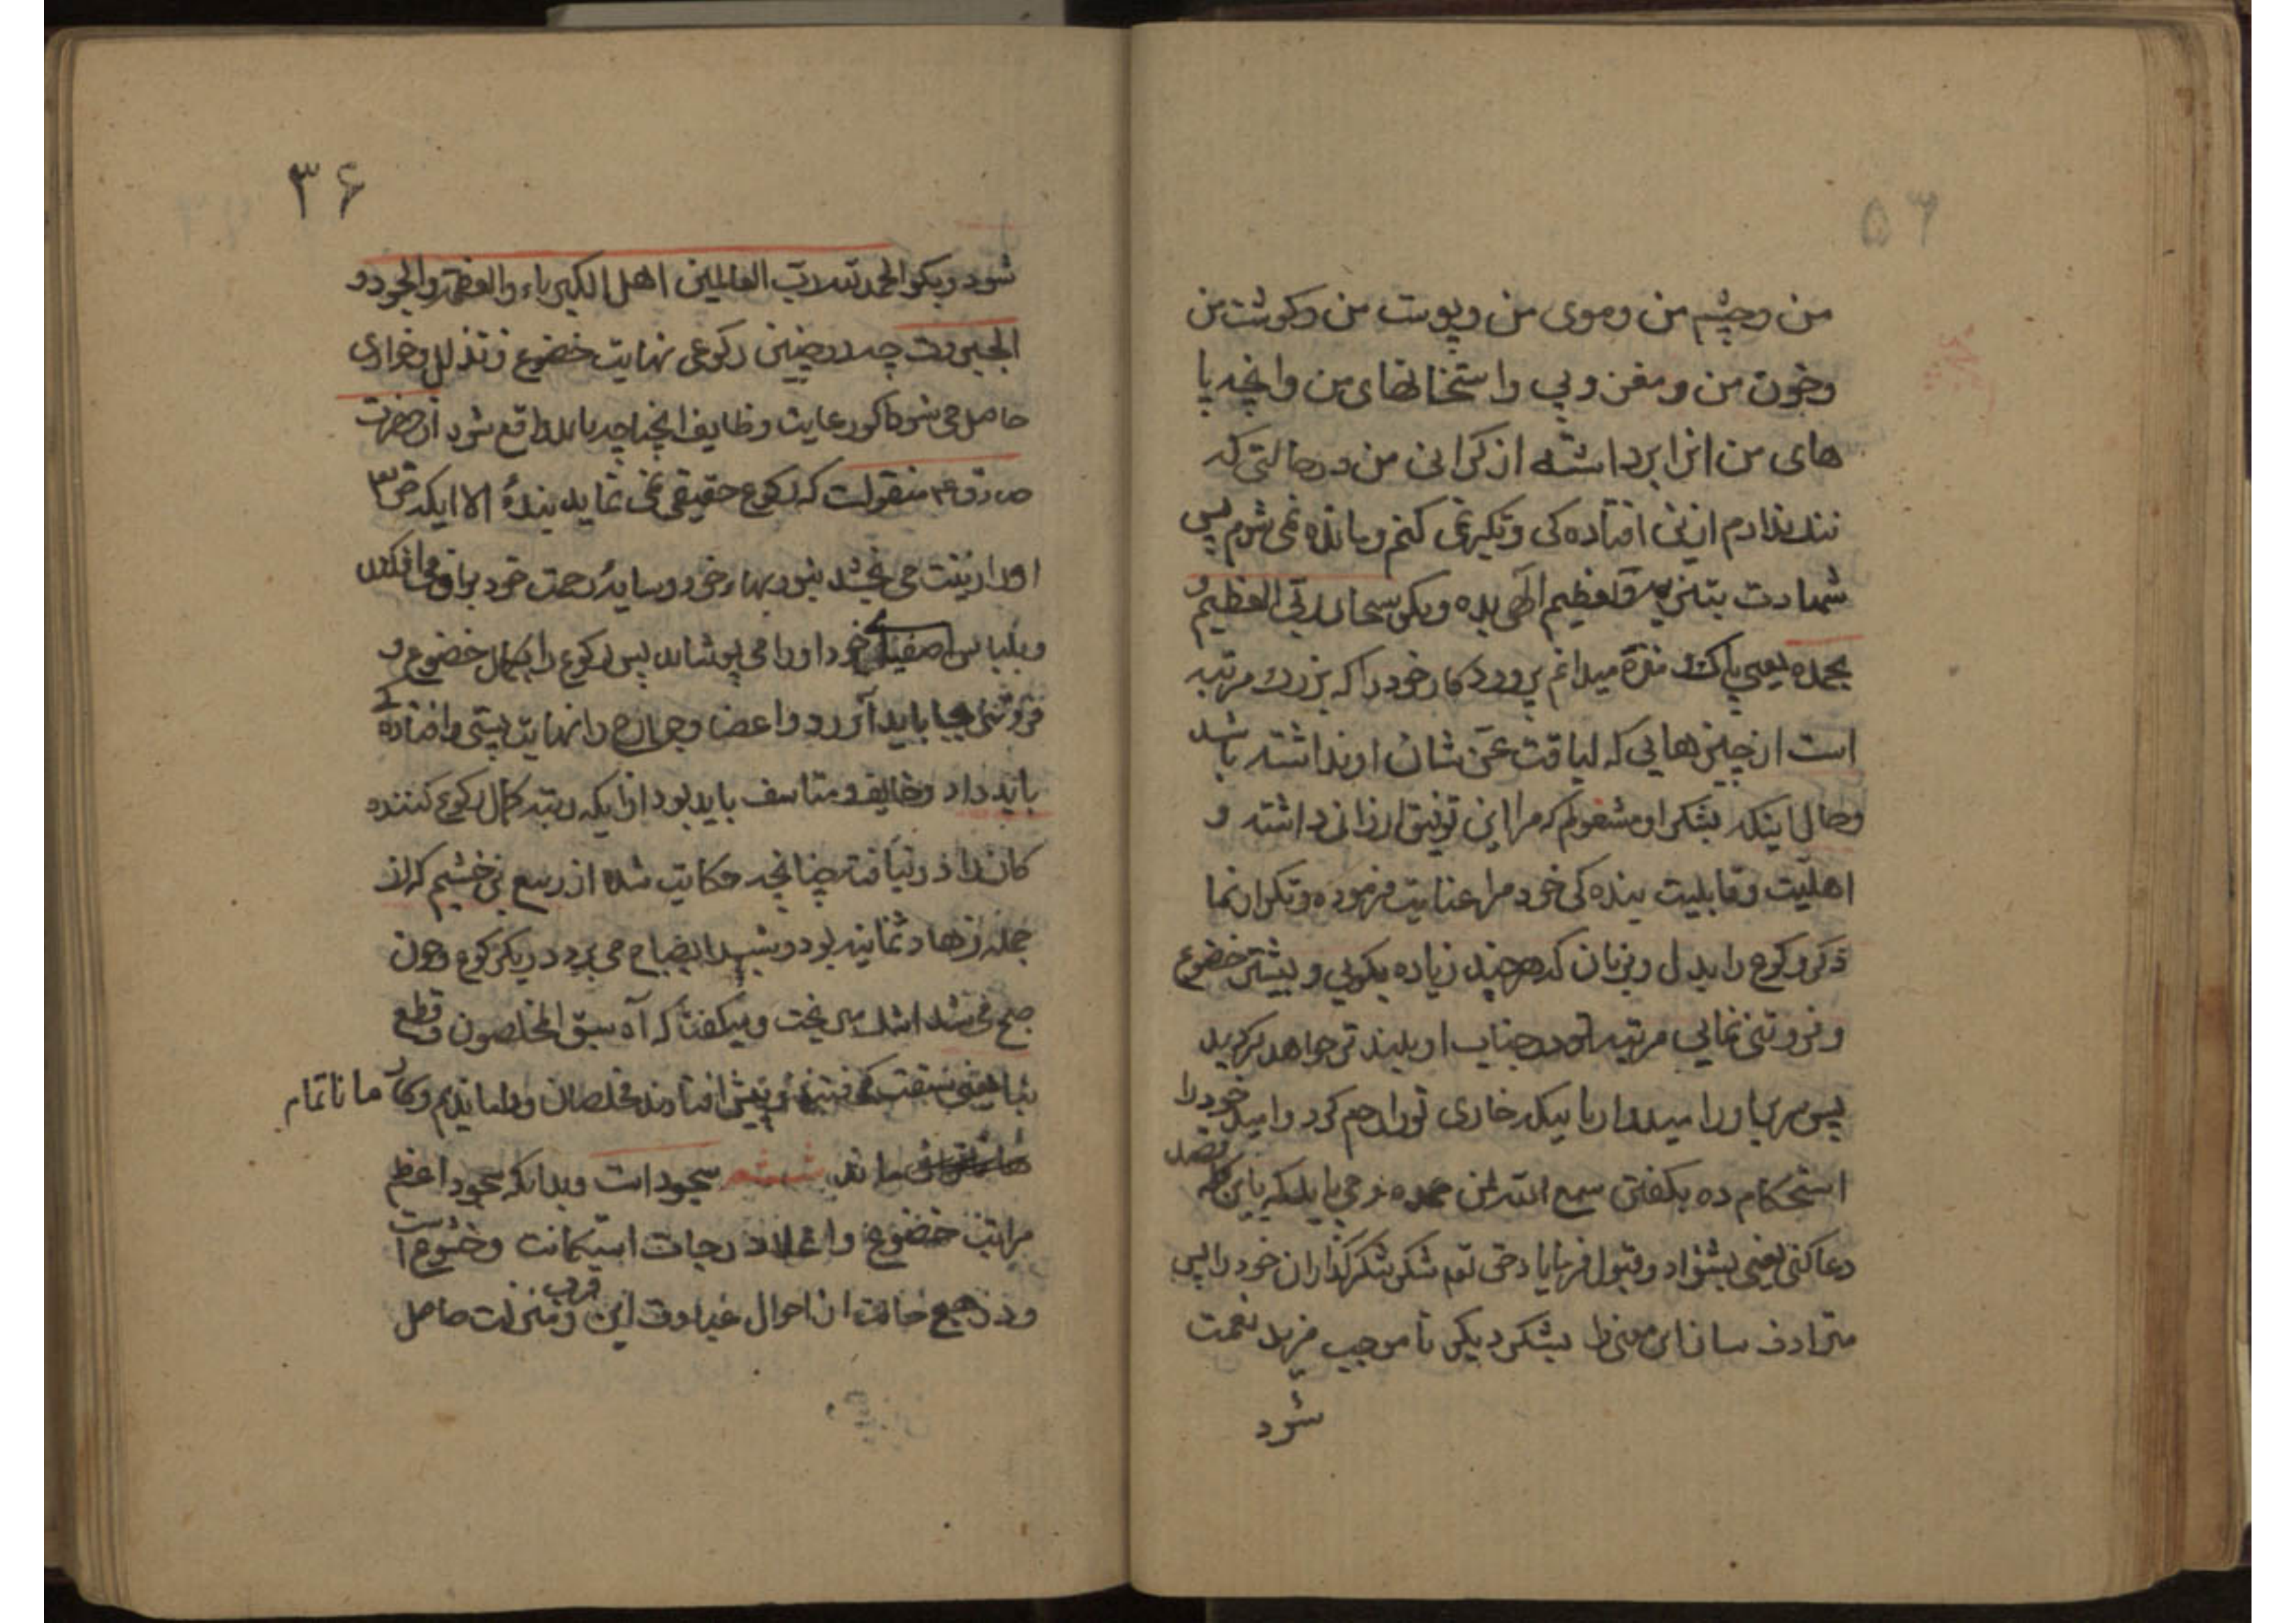 من و چشم من و موی من و پوست من و کوشت من
و خون من و مغز و پی و استخانهای من و آنچه پا
های من آنرا برداشته از کرانی من در حالتی که
ننک ندارم از این افتاده کی و تکبر نمی کنم و مانده نمی شوم پس
شهادت بتنزیه و تعظیم الهی بده و بکو سبحان ربی العظیم و
بحمده یعنی پاک و منزه میدانم پروردکار خود را که بزرک مرتبه
است از چیزهایی که لیاقت عز شان او نداشته باشد
و حال اینکه بشکر او مشغولم که مرا این توفیق ارزانی داشته و
اهلیت و قابلیت بنده کی خود مرا عنایت فرموده و تکرار نما
ذکر رکوع را بدل و زبان که هر چند زیاده بکویی و بیشتر خضوع
و فروتنی نمایی مرتبه تو در جناب او بلندتر خواهد کردید
پس سر بیاور امیدوار با نیکه خاری تو را رحم کرد و امید خود را
استحکام ده بکفتن سمع الله لمن حمده و می باید که باین کلمه قصد
دعا کنی یعنی بشنواد و قبول فرمایاد حق تعم شکر شکرکذاران خود را پس
مترادف ساز این معنی را بشکر دیکر تا موجب مزید نعمت
شود
۳۶
شود و بکو الحمد لله رب العالمین اهل الکبریاء و العظمة و الجود و
الجبروت چه در چنین رکوعی نهایت خضوع و تذلل و خواری
حاصل می شود اکر رعایت وظایف آنچنانچه باید واقع شود از حضرت
صادق ع م منقولست که رکوع حقیقی نمی نماید بنده الا اینکه حق تع
او را زینت می بخشد بنور بهاء خود و سایه رحمت خود بر او می افکند
و بلباس اصفیای خود او را می پوشاند پس رکوع را بکمال خضوع و
فروتنی بجا باید آورد و اعضا و جوارح را نهایت پستی و افتاده کی
باید داد و خایف و متاسف باید بود از اینکه رتبه کمال رکوع کننده
کان را در نیافته چنانچه حکایت شده از ربیع بن خشیم که از
جمله زهاد ثمانیه بود و شب را بصباح می برد در یک رکوع و چون
صبح می شد اشک می ریخت و میکفت که آه سبق المخلصون و قطع
بنا یعنی سبقت کرفتند و پیش افتادند مخلصان و ما ماندیم و کار ما ناتمام
ماند ششم سجود است و بدانکه سجود اعظم
مراتب خضوع و اعلا درجات استکانت و خشوع است
و در هیچ حالت از احوال عبادت این قرب و منزلت حاصل